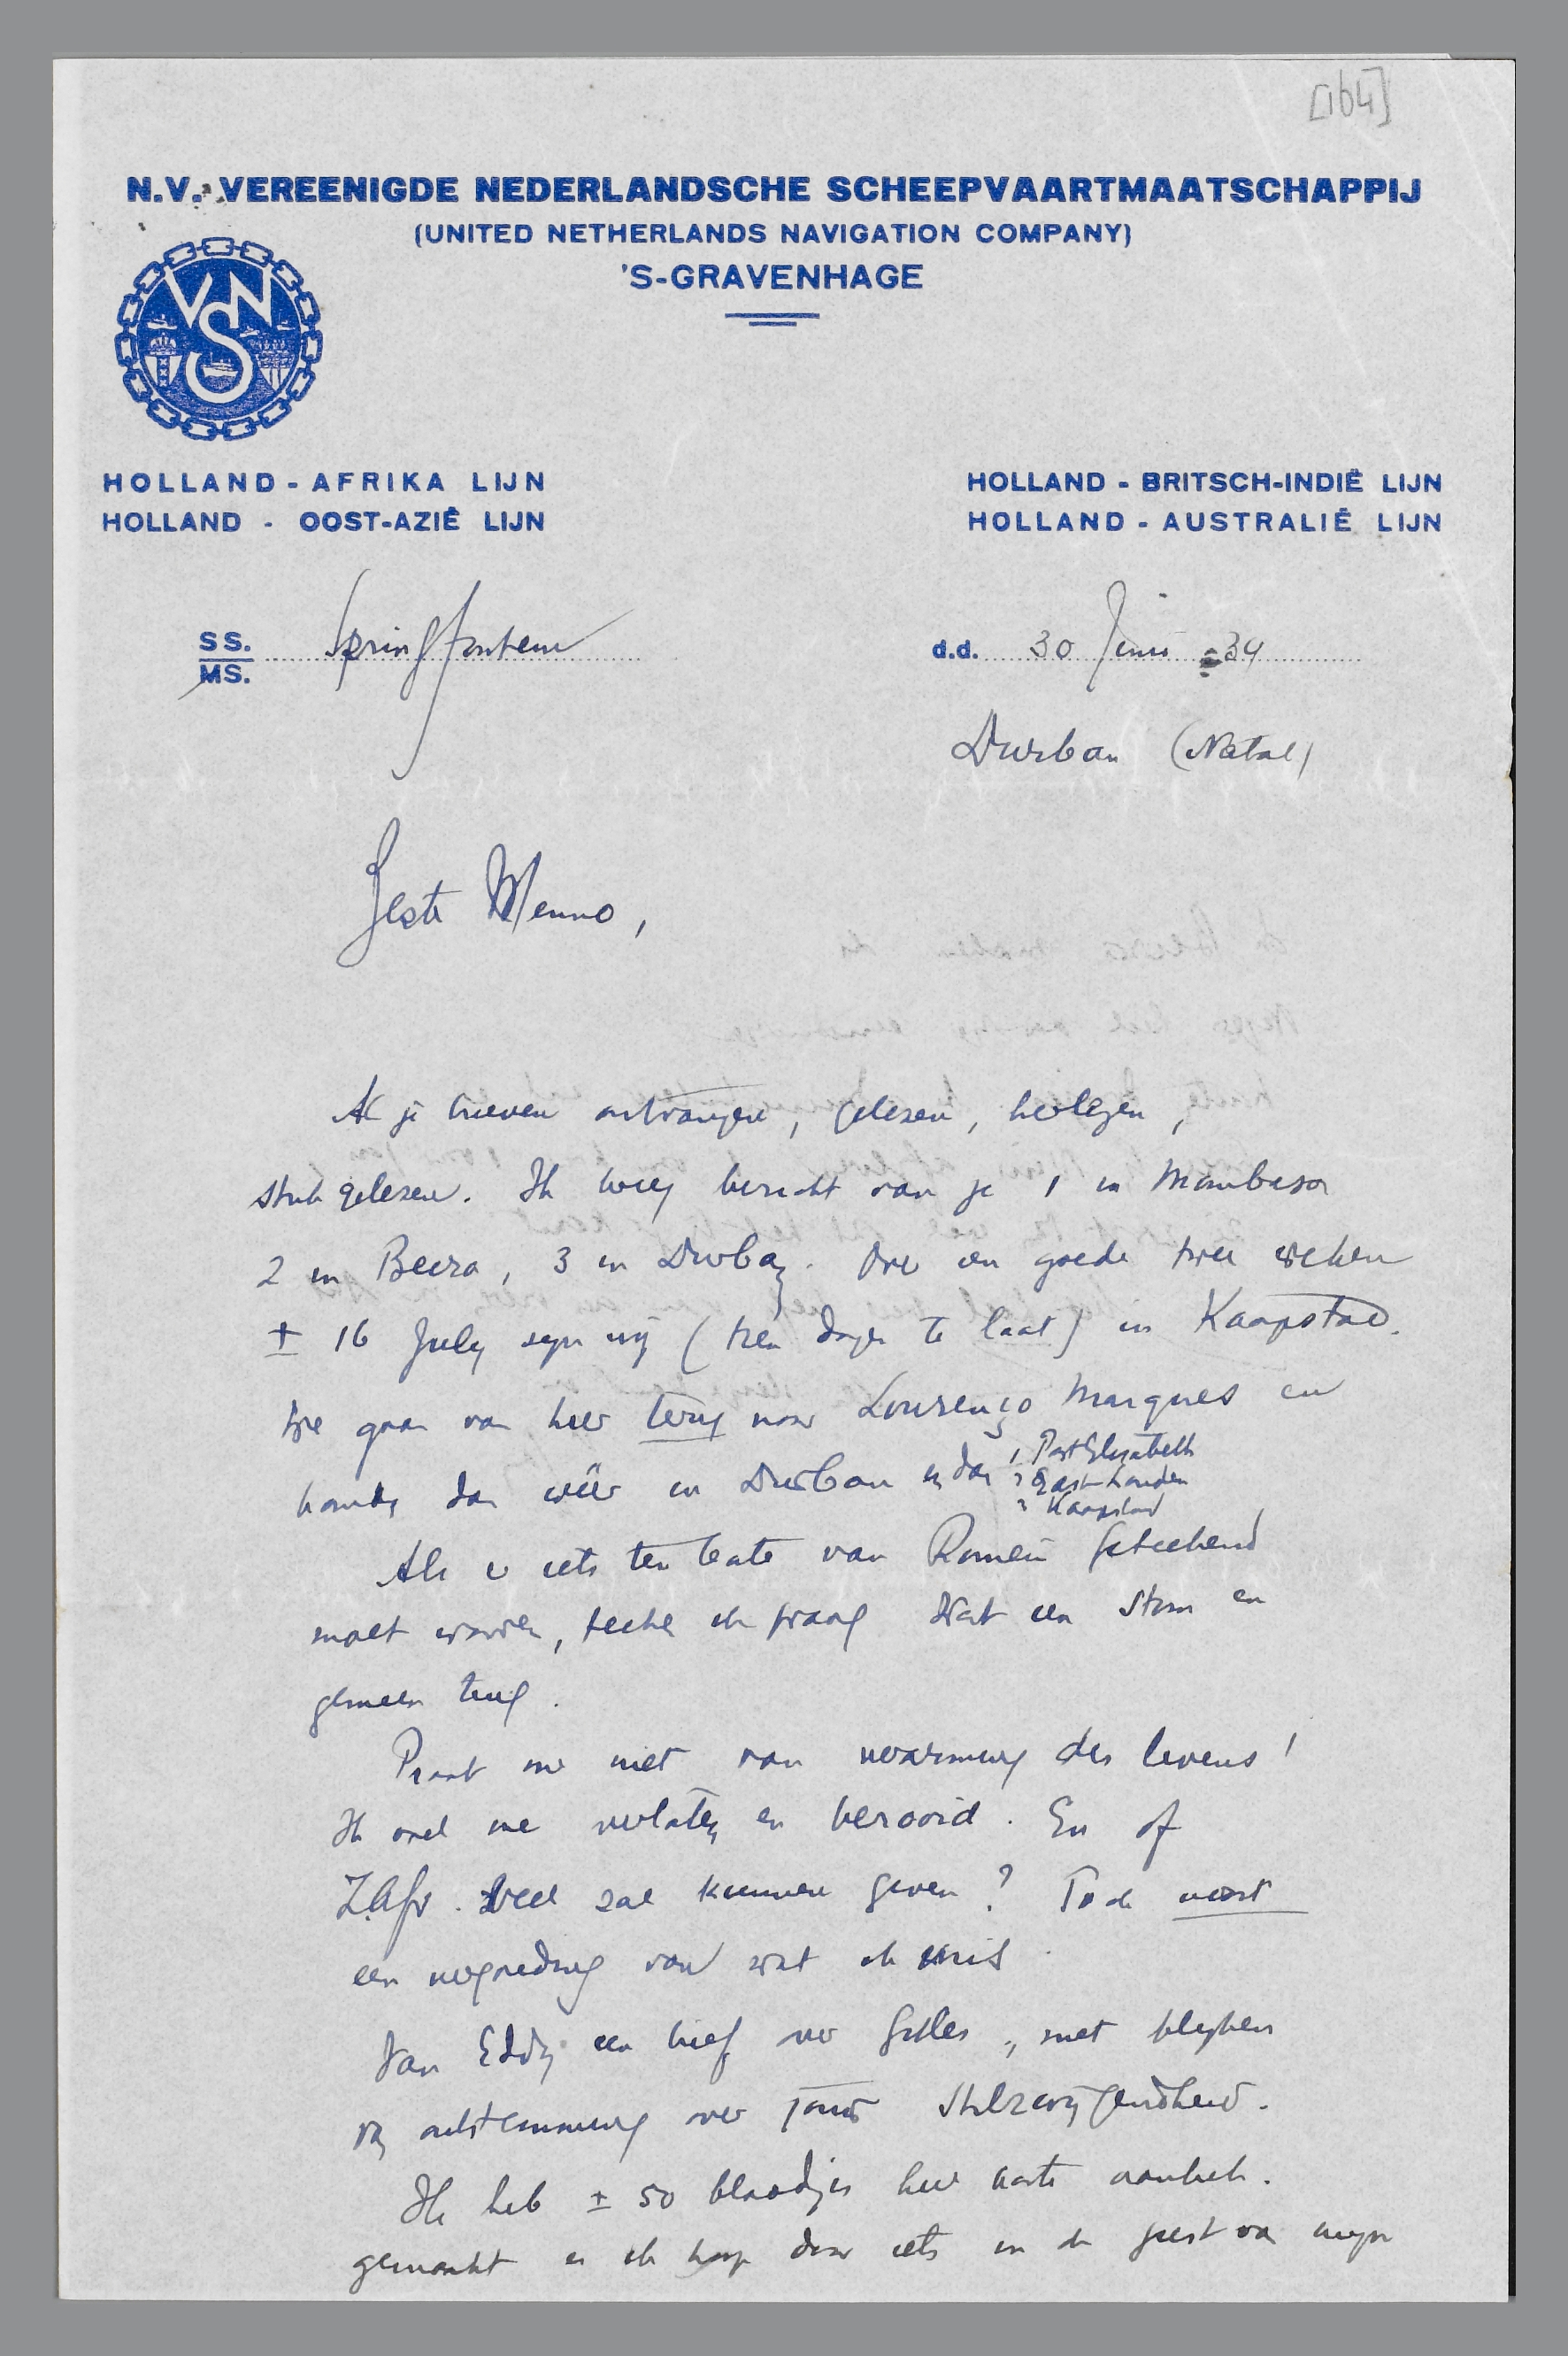 [164]
N.V. VEREENIGDE NEDERLANDSCHE SCHEEPVAARTMAATSCHAPPIJ
(UNITED NETHERLANDS NAVIGATION COMPANY)
'S-GRAVENHAGE
VNS
HOLLAND - AFRIKA LIJN
HOLLAND - BRITSCH-INDIË LIJN
HOLLAND - OOST-AZIË LIJN
HOLLAND - AUSTRALIË LIJN
SS. Springfontein
MS.
d.d. 30 Juni -34
Durban (Natal)
Beste Menno,
Al je brieven ontvangen, gelezen, herlezen,
stuk gelezen. Ik kreeg bericht van je 1 in Mombasa
2 in Beira, 3 in Durban. Over een goede twee weken
± 16 July zijn wij (tien dagen te laat) in Kaapstad.
We gaan van hier terug naar Lourenço Marques en
komen dan weer in Durban en dan 1 Port Elizabeth
2 East-Londen
3 Kaapstad
Als er iets ten bate van Romein geteekend
moet worden, teeken ik graag. Wat een stom en
gemeen tuig.
Praat me niet van verarming des levens!
Ik voel me verlaten en berooid. En of
Z.Afr. veel zal kunnen geven? Toch nooit
een vergoeding van wat ik mis.
Van Eddy een brief over Gilles, met
ontstemming over stilzwijgendheid.
Ik heb ± 50 blaadjes
gemaakt en ik hoop daar iets in de geest van mijn